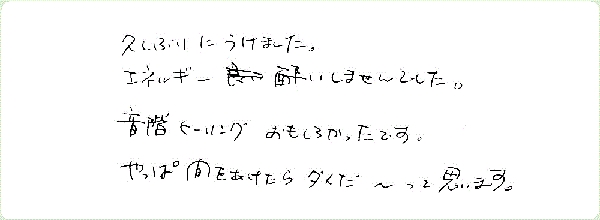 久しぶりにうけました。
エネルギー酔いしませんでした。
音階ヒーリングおもしろかったです。
やっぱ間をあけたらダメだ〜って思います。